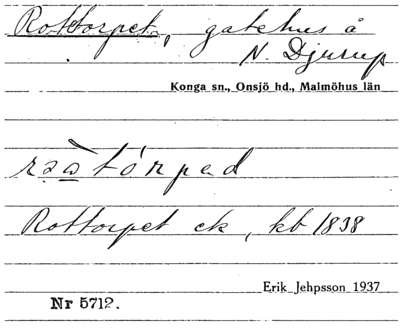 Rottorpet, gatehus å
N. Djurup
Konga sn., Onsjö hd., Malmöhus län
Rottorpet ek, kb 1838
Erik Jehpsson 1937
Nr 5712.